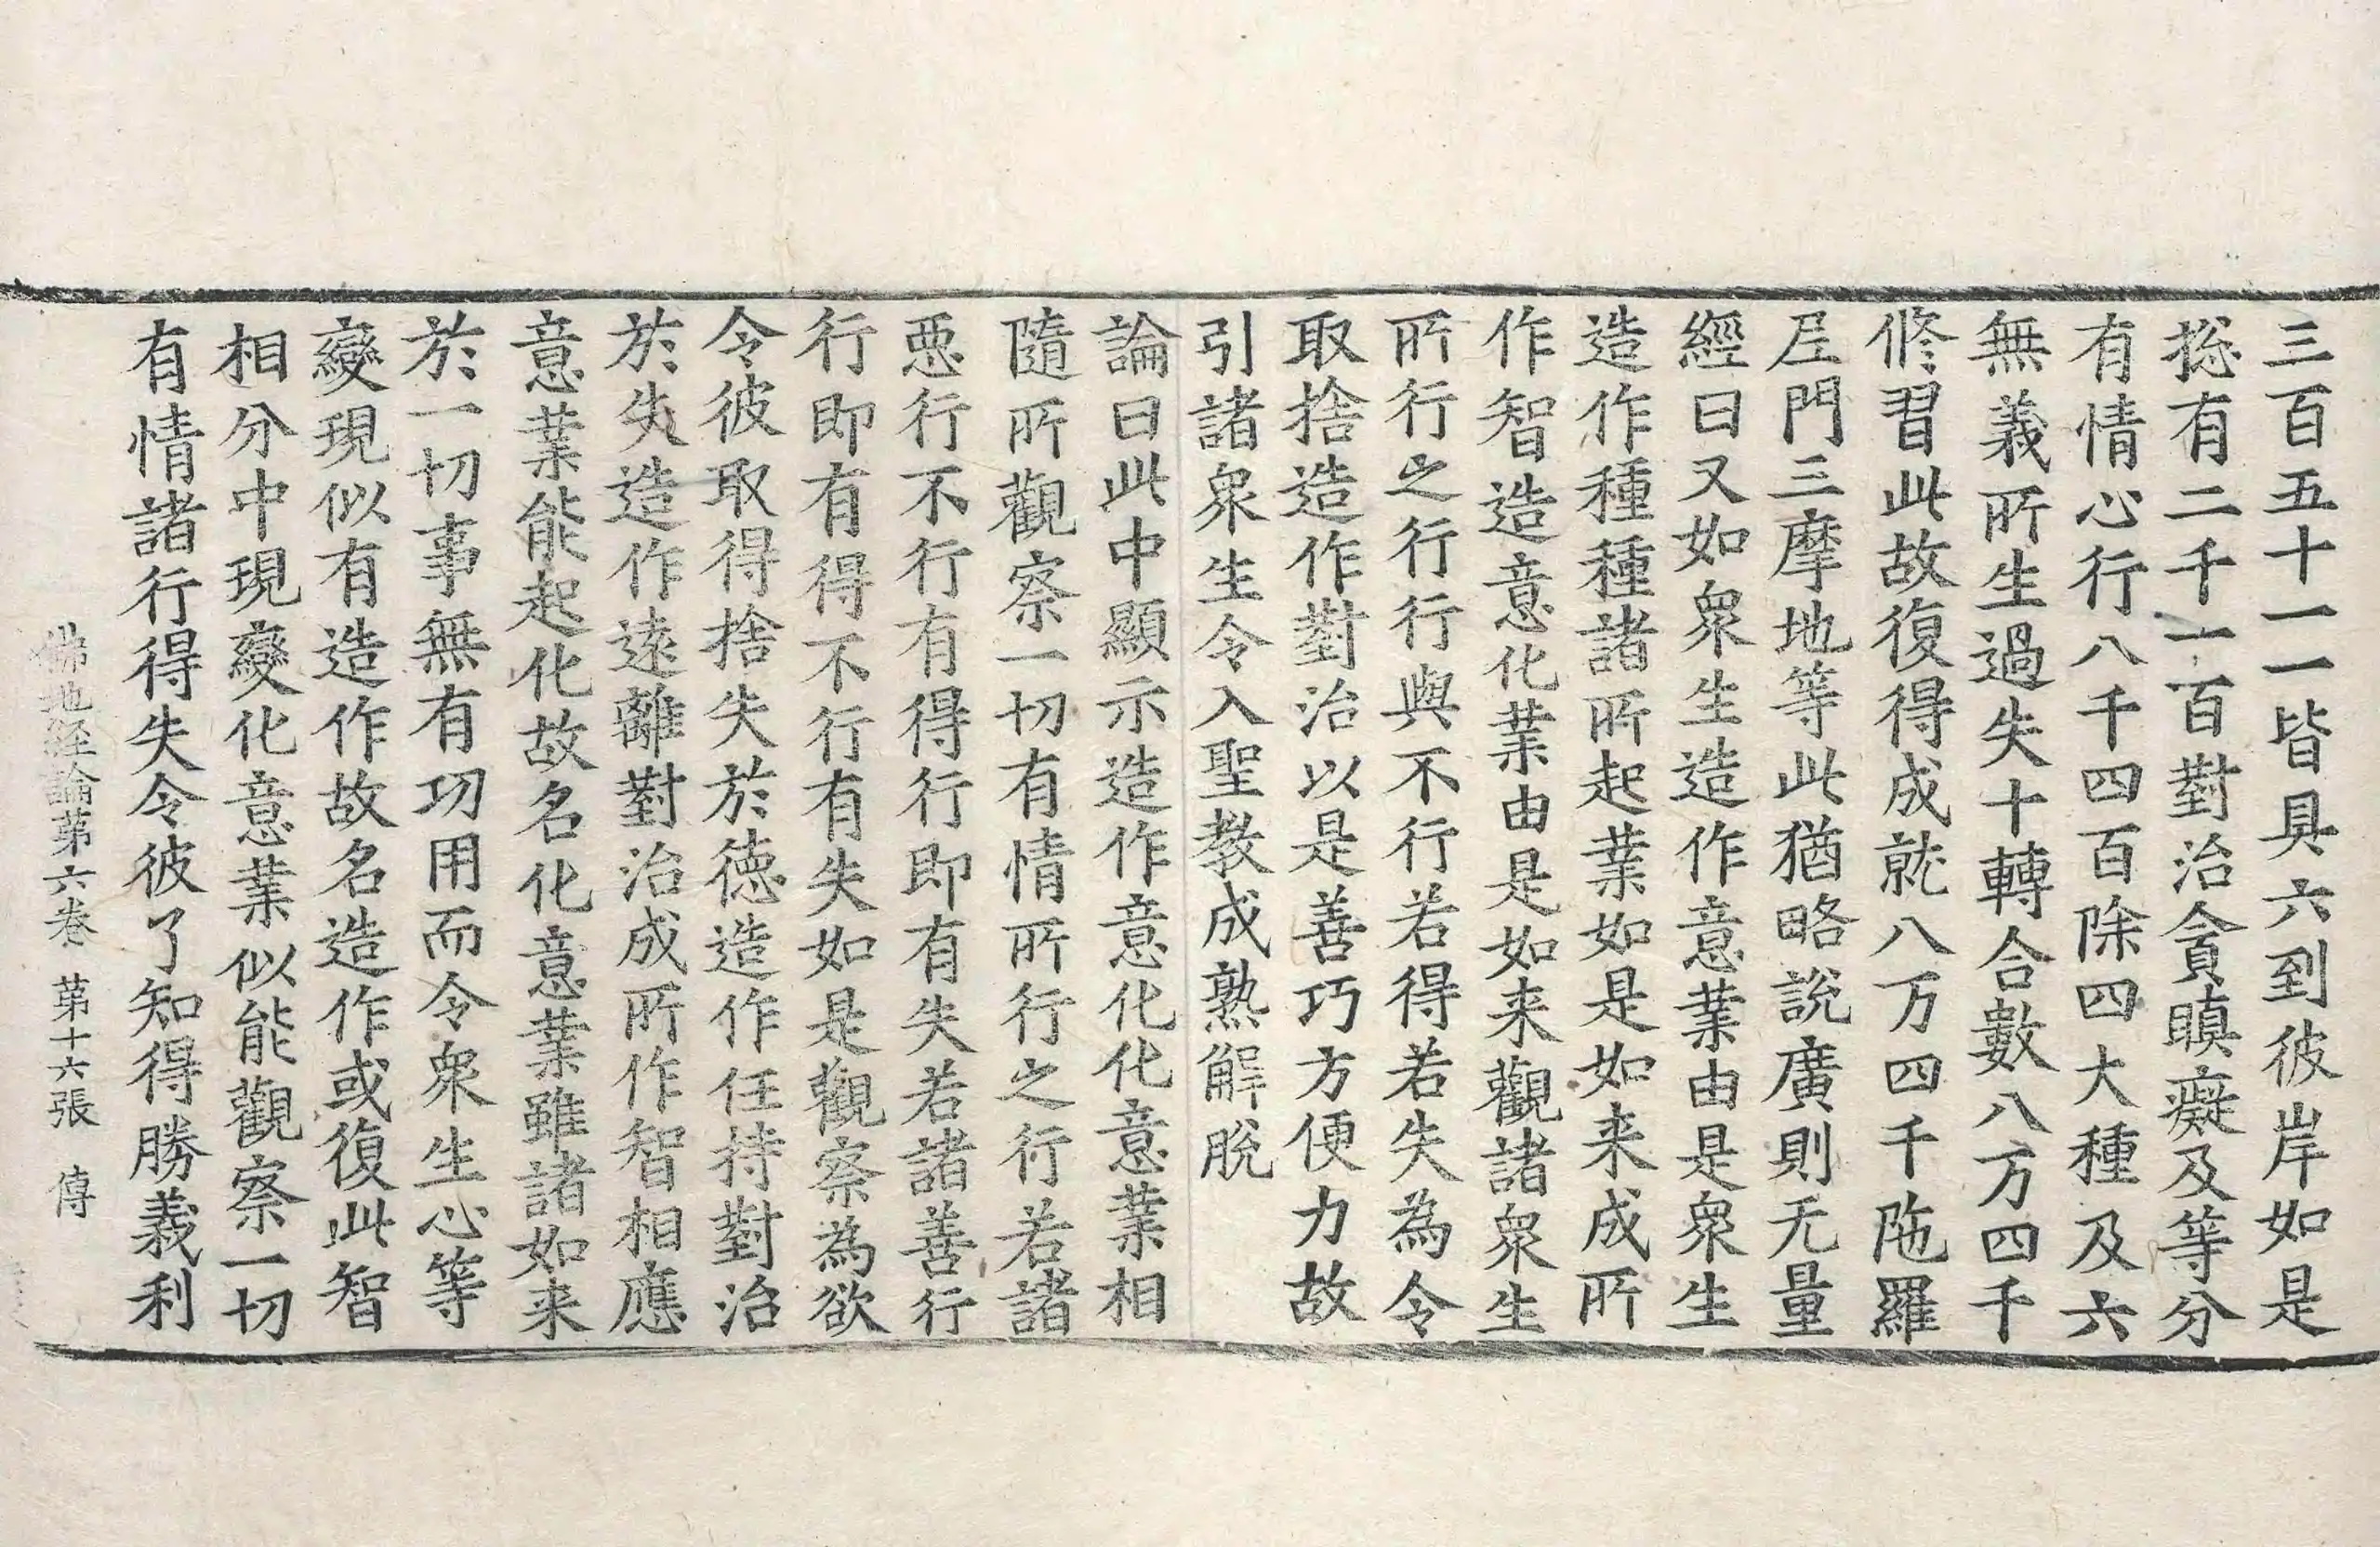 三百五十一一皆具六到彼岸如是
捴有二千一百對治貪瞋癡及等分
有情心行八千四百除四大種及六
無義所生過失十轉合數八万四千
修習此故復得成就八万四千陁羅
𡰱門三摩地等此猶略說廣則无量
經曰又如衆生造作意業由是衆生
造作種種諸所起業如是如来成所
作智造意化業由是如来觀諸衆生
所行之行行與不行若得若失為令
取捨造作對治以是善巧方便力故
引諸衆生令入聖教成熟解脫
論曰此中顯示造作意化化意業相
隨所觀察一切有情所行之行若諸
悪行不行有得行即有失若諸善行
行即有得不行有失如是觀察為欲
令彼取得捨失於徳造作任持對治
於失造作遠離對治成所作智相應
意業能起化故名化意業雖諸如来
於一切事無有功用而令衆生心等
變現似有造作故名造作或復此智
相分中現變化意業似能觀察一切
有情諸行得失令彼了知得勝義利
佛地経論第六卷 第十六張 傳